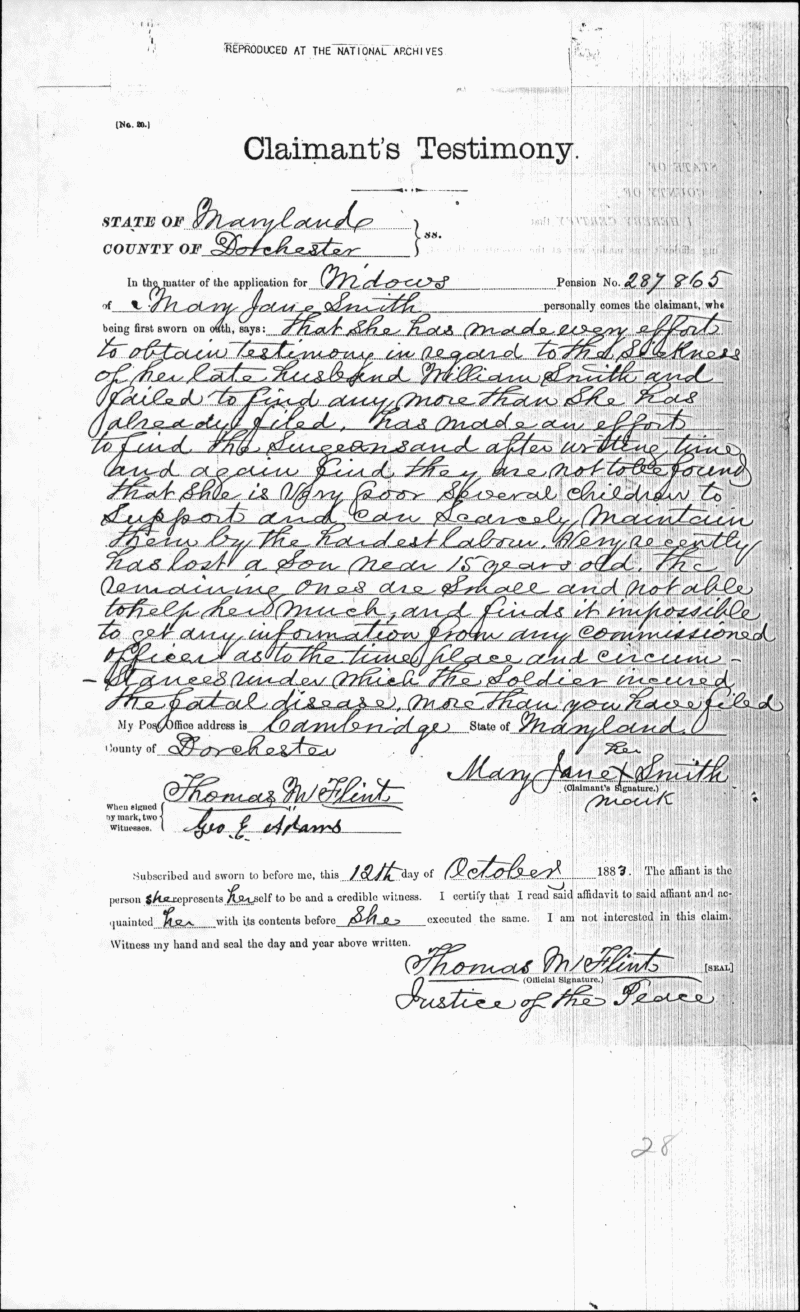 REPRODUCED AT THE NATIONAL ARCHIVES
[No. 20.]
Claimant's Testimony.
STATE OF Maryland
COUNTY OF Dorchester } ss.
In the matter of the application for Widows Pension No. 287865
of Mary Jane Smith personally comes the claimant, who
being first sworn on oath, says: that she has made every effort
to obtain testimony in regard to the Sickness
of her late husband William Smith and
failed to find any more than She has
already filed. has made an effort
to find the Surgeons and after writing time
and again find they are not to be found
that She is Very poor Several children to
Support and can Scarcely maintain
them by the hardest labour. Very recently
has lost a Son near 15 years old. the
remaining ones are Small and not able
to help her much, and finds it impossible
to get any information from any commissioned
officer as to the time place and circum-
-stances under which the Soldier incured
the fatal disease, more than you have filed
My Post Office address is Cambridge State of Maryland.
County of Dorchester
her
Mary Jane X Smith
(Claimant's Signature.)
mark
When signed by mark, two Witnesses. { Thomas W Flint
Geo E. Adams
Subscribed and sworn to before me, this 12th day of October 1883. The affiant is the
person she represents herself to be and a credible witness. I certify that I read said affidavit to said affiant and ac-
quainted her with its contents before She executed the same. I am not interested in this claim.
Witness my hand and seal the day and year above written.
Thomas W Flint [SEAL]
(Official Signature.)
Justice of the Peace
28